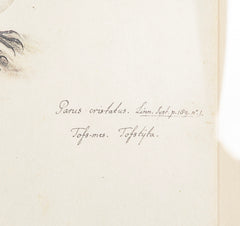 Parus cristatus. Linn. Syst. p. 189. n:1.
Tofs-mes. Tofstÿta.